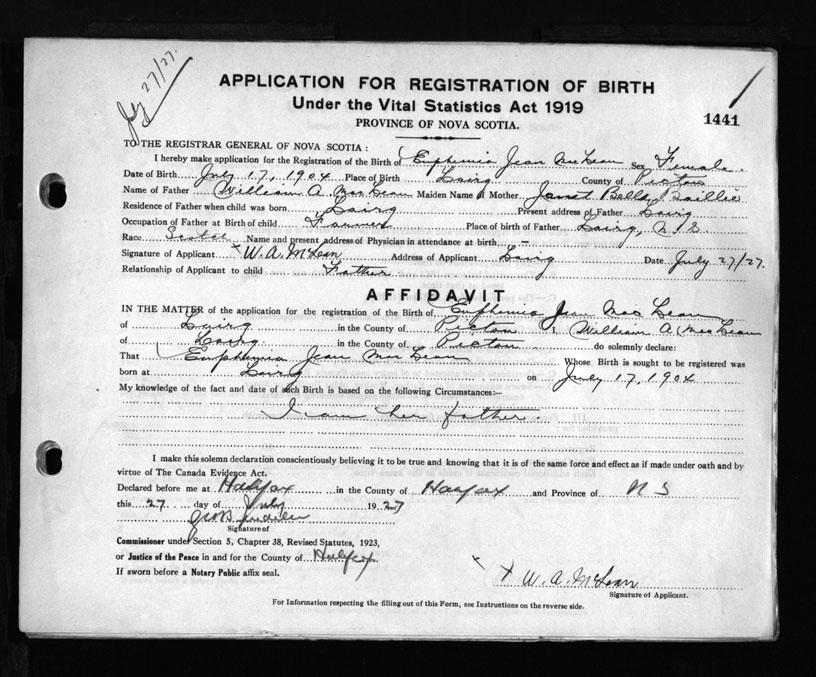 July 27/27.
APPLICATION FOR REGISTRATION OF BIRTH
Under the Vital Statistics Act 1919
PROVINCE OF NOVA SCOTIA.
1441
TO THE REGISTRAR GENERAL OF NOVA SCOTIA :
I hereby make application for the Registration of the Birth of Euphemia Jean MacLean Sex Female.
Date of Birth July 17, 1904 Place of Birth Lairg County of Pictou
Name of Father William A. MacLean Maiden Name of Mother Janet Bella Baillie
Residence of Father when child was born Lairg Present address of Father Lairg
Occupation of Father at Birth of child Farmer Place of birth of Father Lairg, N.S.
Race Scotch Name and present address of Physician in attendance at birth –
Signature of Applicant x W. A. McLean Address of Applicant Lairg Date July 27/27.
Relationship of Applicant to child Father
AFFIDAVIT
IN THE MATTER of the application for the registration of the Birth of Euphemia Jean MacLean
of Lairg in the County of Pictou I, William A. MacLean
of Lairg in the County of Pictou do solemnly declare:
That Euphemia Jean MacLean Whose Birth is sought to be registered was
born at Lairg on July 17, 1904
My knowledge of the fact and date of such Birth is based on the following Circumstances:—
I am her father.
I make this solemn declaration conscientiously believing it to be true and knowing that it is of the same force and effect as if made under oath and by
virtue of The Canada Evidence Act.
Declared before me at Halifax in the County of Halifax and Province of N S
this 27 day of July 1927
Signature of
Commissioner under Section 5, Chapter 38, Revised Statutes, 1923,
or Justice of the Peace in and for the County of Halifax
If sworn before a Notary Public affix seal.
x W. A. McLean
Signature of Applicant.
For Information respecting the filling out of this Form, see Instructions on the reverse side.